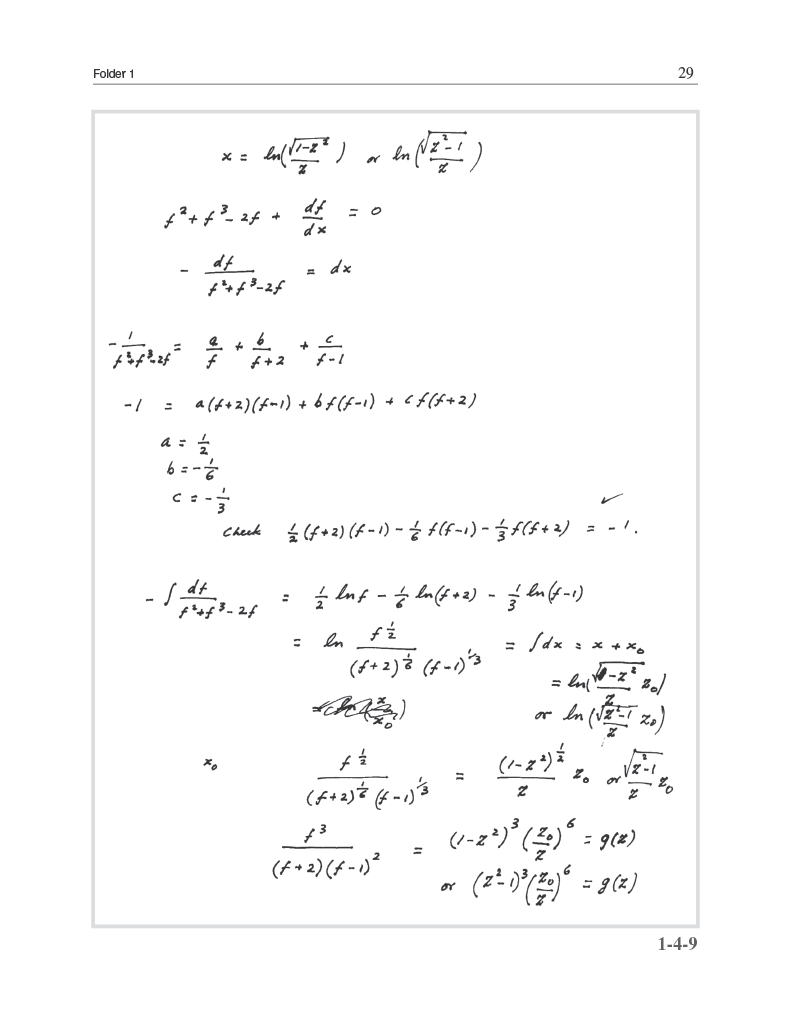 Folder 1 29
x = ln(√(1-z²)/z) or ln(√(z²-1)/z)
f² + f³ - 2f + df/dx = 0
- df/(f²+f³-2f) = dx
- 1/(f²+f³-2f) = a/f + b/(f+2) + c/(f-1)
-1 = a(f+2)(f-1) + b f(f-1) + c f(f+2)
a = 1/2
b = -1/6
c = -1/3
✓
Check 1/2 (f+2)(f-1) - 1/6 f(f-1) - 1/3 f(f+2) = -1.
- ∫ df/(f²+f³-2f) = 1/2 ln f - 1/6 ln(f+2) - 1/3 ln(f-1)
= ln f^(1/2)/((f+2)^(1/6) (f-1)^(1/3)) = ∫dx = x + x₀
= ln(√(1-z²)/z z₀)
or ln(√(z²-1)/z z₀)
x₀ f^(1/2)/((f+2)^(1/6) (f-1)^(1/3)) = (1-z²)^(1/2)/z z₀ or √(z²-1)/z z₀
f³/((f+2)(f-1)²) = (1-z²)³ (z₀/z)⁶ = g(z)
or (z²-1)³ (z₀/z)⁶ = g(z)
1-4-9